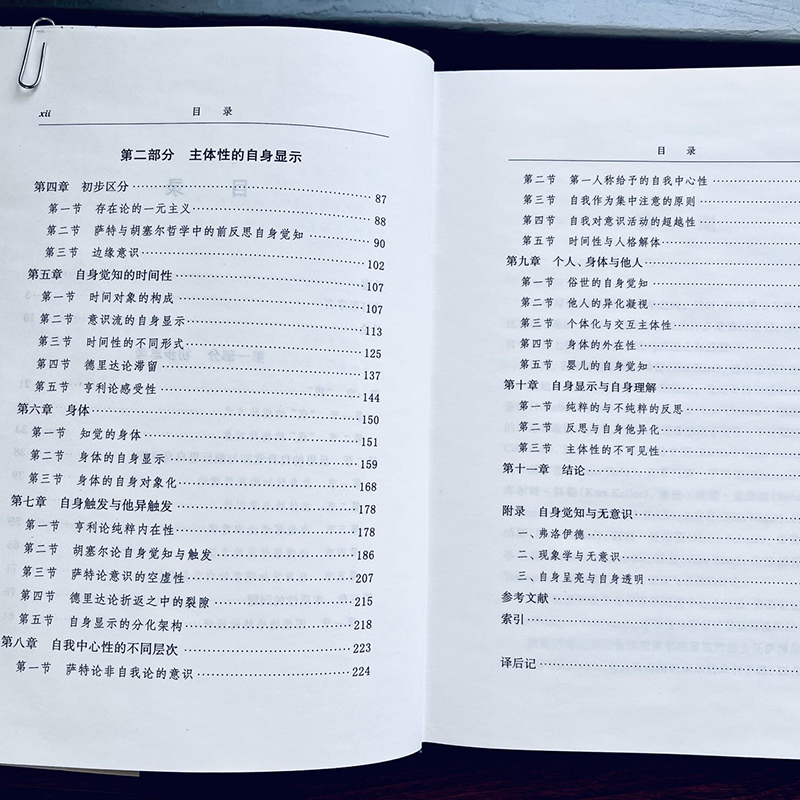 xii 目 录
第二部分 主体性的自身显示
第四章 初步区分 87
第一节 存在论的一元主义 88
第二节 萨特与胡塞尔哲学中的前反思自身觉知 90
第三节 边缘意识 102
第五章 自身觉知的时间性 107
第一节 时间对象的构成 107
第二节 意识流的自身显示 113
第三节 时间性的不同形式 125
第四节 德里达论滞留 137
第五节 亨利论感受性 144
第六章 身体 150
第一节 知觉的身体 151
第二节 身体的自身显示 159
第三节 身体的自身对象化 168
第七章 自身触发与他异触发 178
第一节 亨利论纯粹内在性 178
第二节 胡塞尔论自身觉知与触发 186
第三节 萨特论意识的空虚性 207
第四节 德里达论折返之中的裂隙 215
第五节 自身显示的分化架构 218
第八章 自我中心性的不同层次 223
第一节 萨特论非自我论的意识 224
目 录
第二节 第一人称给予的自我中心性
第三节 自我作为集中注意的原则
第四节 自我对意识活动的超越性
第五节 时间性与人格解体
第九章 个人、身体与他人
第一节 俗世的自身觉知
第二节 他人的异化凝视
第三节 个体化与交互主体性
第四节 身体的外在性
第五节 婴儿的自身觉知
第十章 自身显示与自身理解
第一节 纯粹的与不纯粹的反思
第二节 反思与自身他异化
第三节 主体性的不可见性
第十一章 结论
附录 自身觉知与无意识
一、弗洛伊德
二、现象学与无意识
三、自身呈亮与自身透明
参考文献
索引
译后记